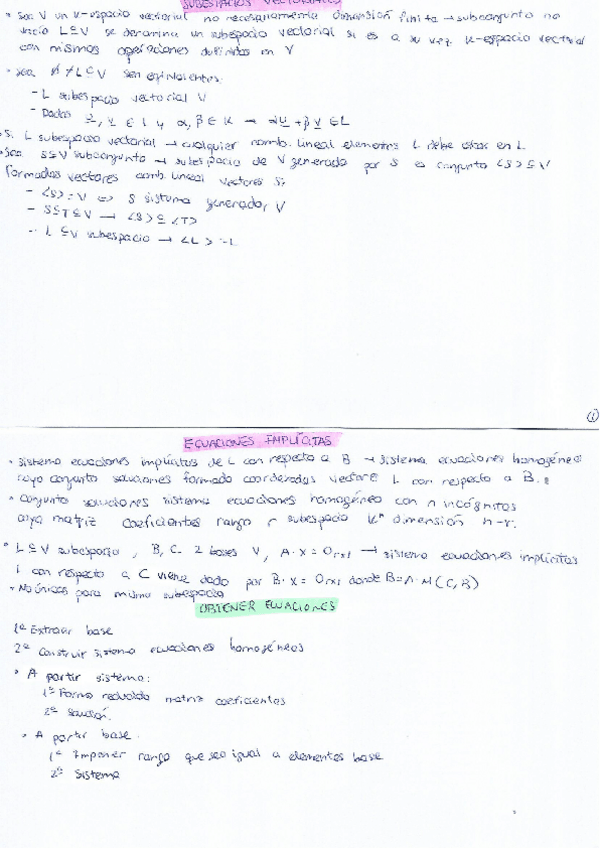 SUBESPACIOS VECTORIALES
• Sea V un K-espacio vectorial no necesariamente dimensión finita → subconjunto no
vacío L⊆V se denomina un subespacio vectorial si es a su vez K-espacio vectorial
con mismas operaciones definidas en V
• Sea ∅≠L⊆V son equivalentes:
- L subespacio vectorial V
- Dados u, v ∈ L y α, β ∈ K → αu + βv ∈ L
• Si L subespacio vectorial → cualquier comb. lineal elementos L debe estar en L.
• Sea S⊆V subconjunto → subespacio de V generado por S es conjunto <S> ⊆ V
formados vectores comb. lineal vectores S:
- <S> = V <=> S sistema generador V
- S⊆T⊆V → <S> ⊆ <T>
- L ⊆V subespacio → <L> = L
1
ECUACIONES IMPLÍCITAS
• Sistema ecuaciones implícitas de L con respecto a B → sistema ecuaciones homogéneo
cuyo conjunto soluciones formado coordenadas vectores L con respecto a B.
• Conjunto soluciones sistema ecuaciones homogéneo con n incógnitas
cuya matriz coeficientes rango r subespacio Kⁿ dimensión n-r.
• L ⊆ V subespacio, B, C 2 bases V, A·X = 0rx1 → sistema ecuaciones implícitas
L con respecto a C viene dado por B·X = 0rx1 donde B=A·M(C,B)
• No únicas para mismo subespacio
OBTENER ECUACIONES
1º Extraer base
2º Construir sistema ecuaciones homogéneos
• A partir sistema:
1º Forma reducida matriz coeficientes
2º Solución.
• A partir base:
1º Imponer rango que sea igual a elementos base
2º Sistema